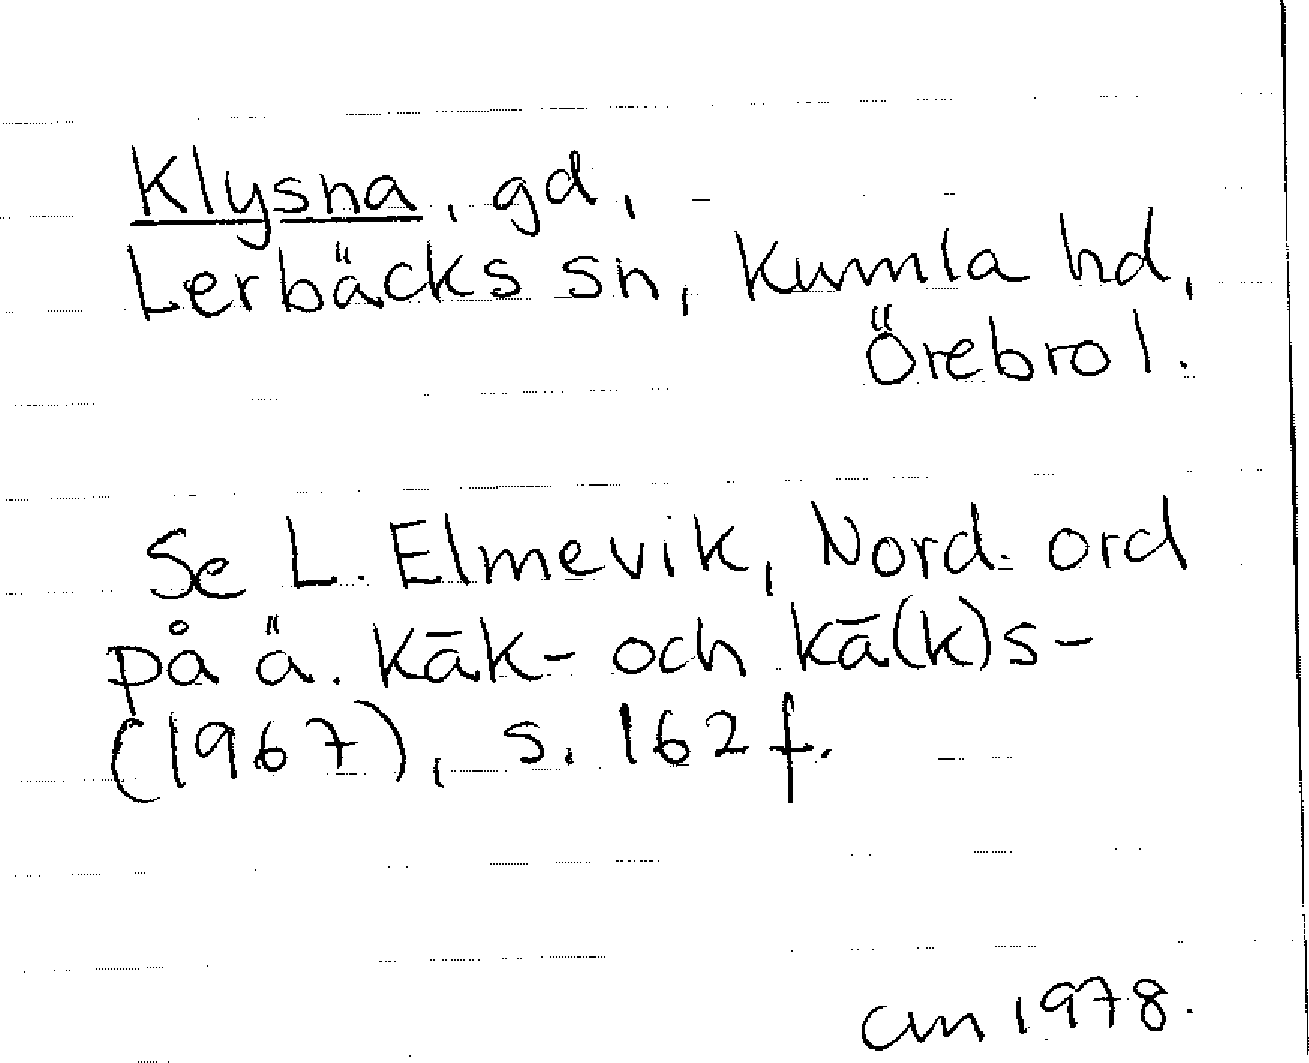 Klysna, gd,
Lerbäcks sn, Kumla hd,
Örebro l.
Se L. Elmevik, Nord. ord
på ä. kāk- och kā(k)s-
(1967), s. 162 f.
cm 1978.